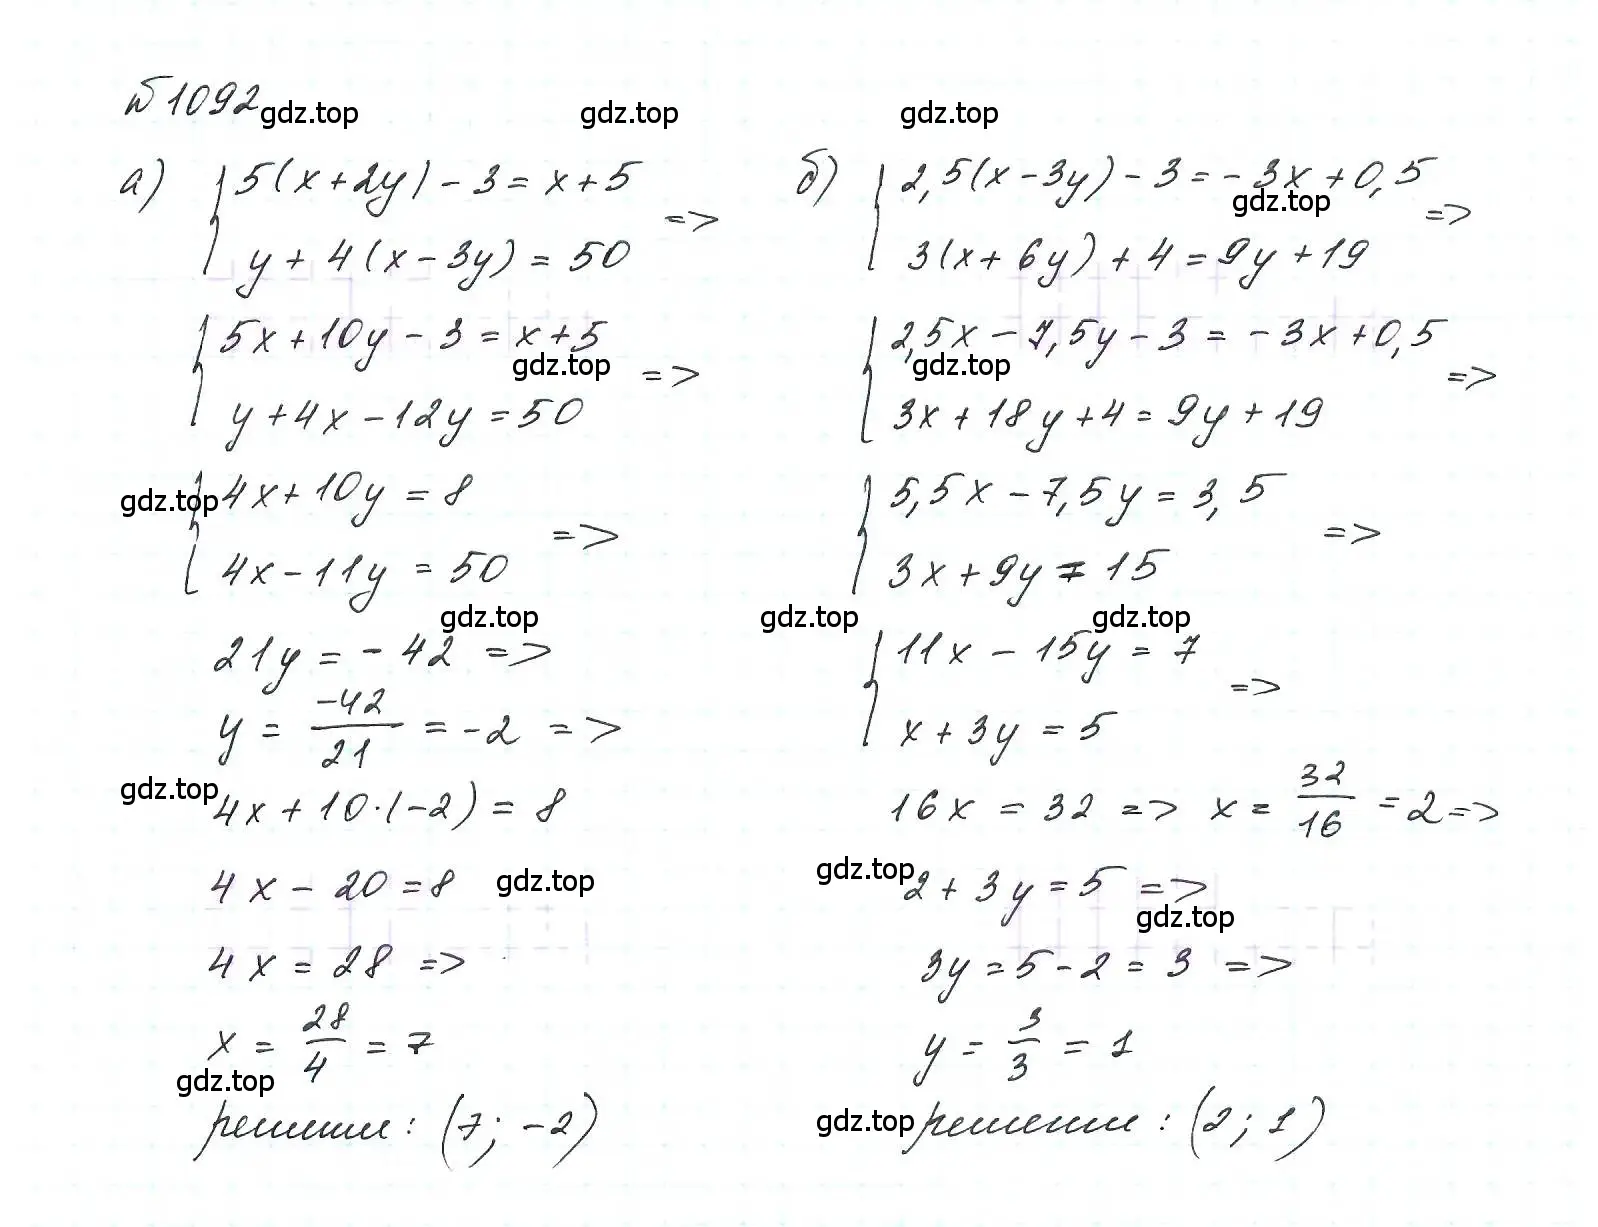 № 1092
gdz.top gdz.top gdz.top
а) { 5(x+2y)-3=x+5
y+4(x-3y)=50 =>
{ 5x+10y-3=x+5
gdz.top
y+4x-12y=50 =>
{ 4x+10y=8
gdz.top
4x-11y=50 =>
gdz.top
21y=-42 =>
y = -42/21 = -2 =>
gdz.top
4x+10·(-2)=8
4x-20=8 gdz.top
4x=28 =>
x = 28/4 = 7
gdz.top
решение: (7; -2)
б) { 2,5(x-3y)-3=-3x+0,5
gdz.top
3(x+6y)+4=9y+19 =>
{ 2,5x-7,5y-3=-3x+0,5
gdz.top
3x+18y+4=9y+19 =>
{ 5,5x-7,5y=3,5
3x+9y=15 =>
gdz.top gdz.top
{ 11x-15y=7
x+3y=5 =>
16x=32 => x = 32/16 = 2 =>
gdz.top
2+3y=5 =>
gdz.top
3y=5-2=3 =>
y = 3/3 = 1
gdz.top
решение: (2; 1)